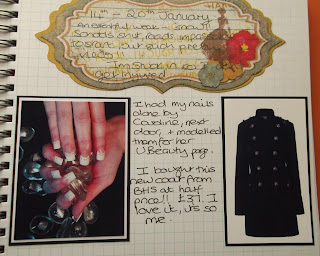 14th - 20th January
An eventful week - snow!!
schools shut, roads impassable
to start, but such pretty
I'm stuck in
get injured
I had my nails
done by
Caroline, next
door, + modelled
them for her
U.Beauty page.
I bought this
new coat from
BHS at half
price!! £37. I
love it, its so
me.